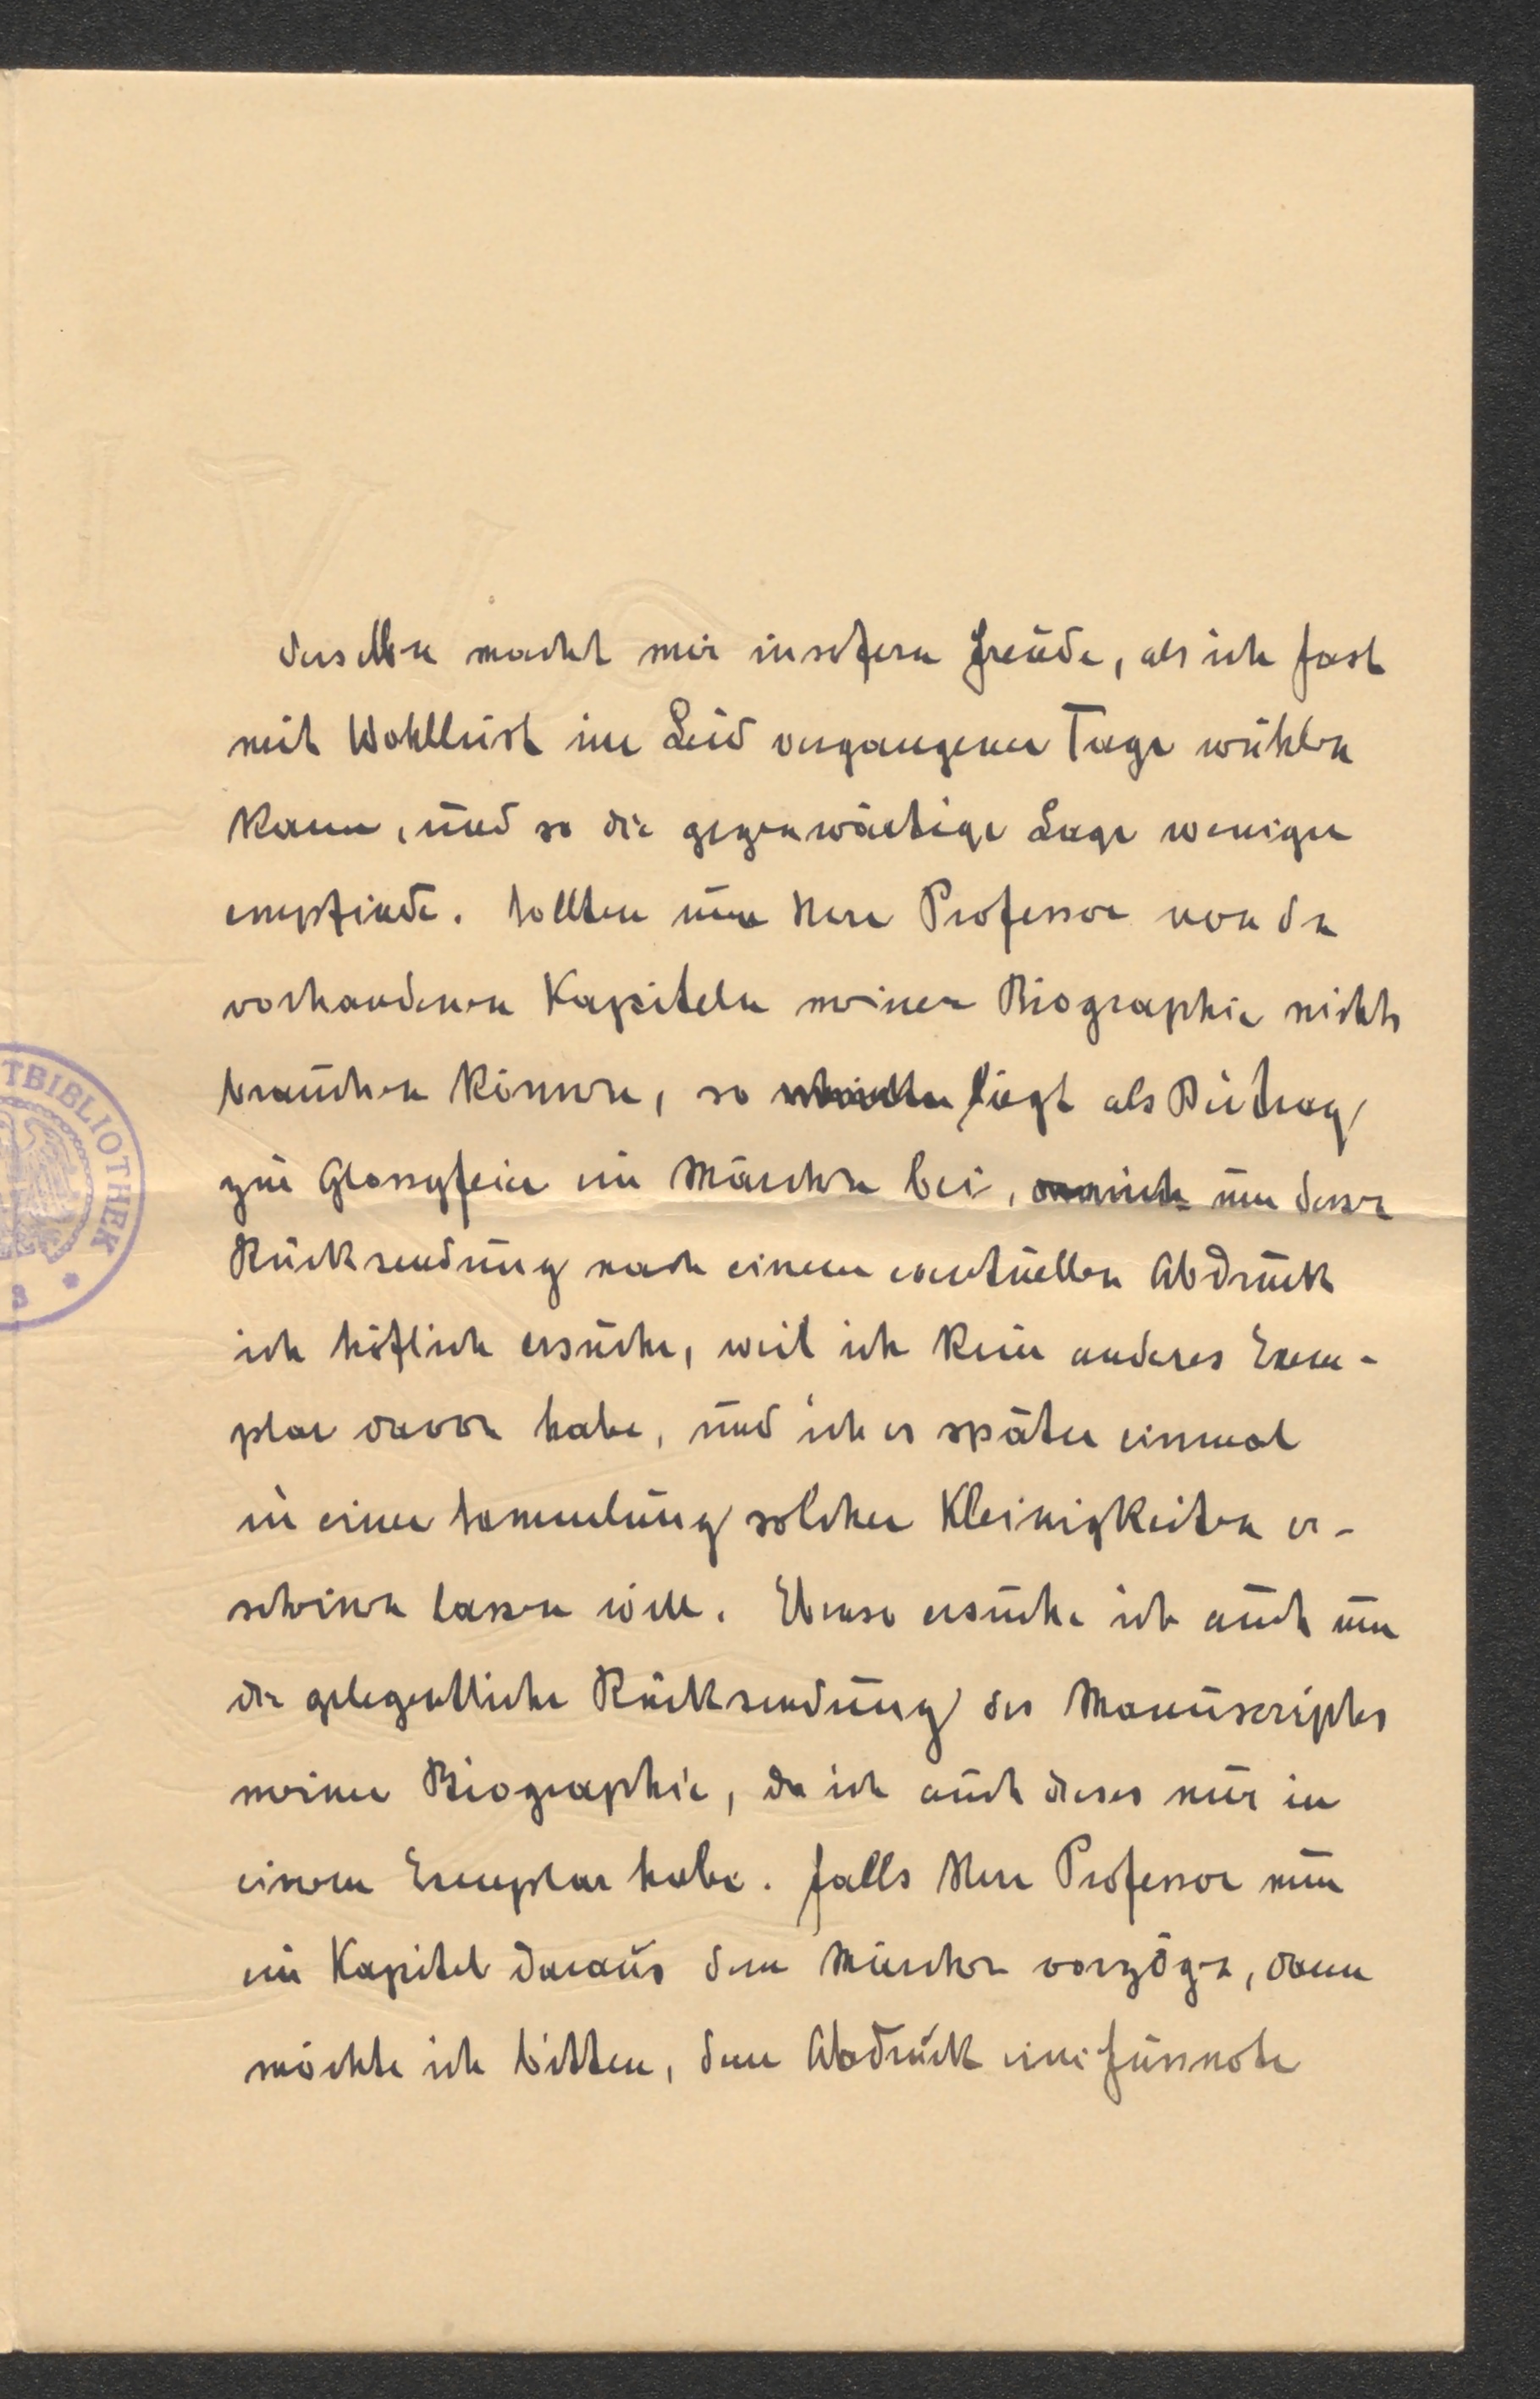 derselben macht mir insofern Freude, als ich fast
mit Wohllust im Leid vergangener Tage wühlen
kann, und so die gegenwärtige Lage weniger
empfinde. Sollten nun Herr Professor von den
vorhandenen Kapiteln meiner Biographie nichts
brauchen können, so liegt als Beitrag
zur Glossyfeier ein Märchen bei, um dessen
Rücksendung nach einem eventuellen Abdruck
ich höflich ersuche, weil ich kein anderes Exem-
plar davon habe, und ich es später einmal
in einer Sammlung solcher Kleinigkeiten er-
scheinen lassen will. Ebenso ersuche ich auch um
die gelegentliche Rücksendung des Manuscriptes
meiner Biographie, da ich auch dieses nur in
einem Exemplar habe. Falls Herr Professor nun
ein Kapitel daraus dem Märchen vorzögen, dann
möchte ich bitten, dem Abdruck eine Fussnote
TBIBLIOTHEK
S